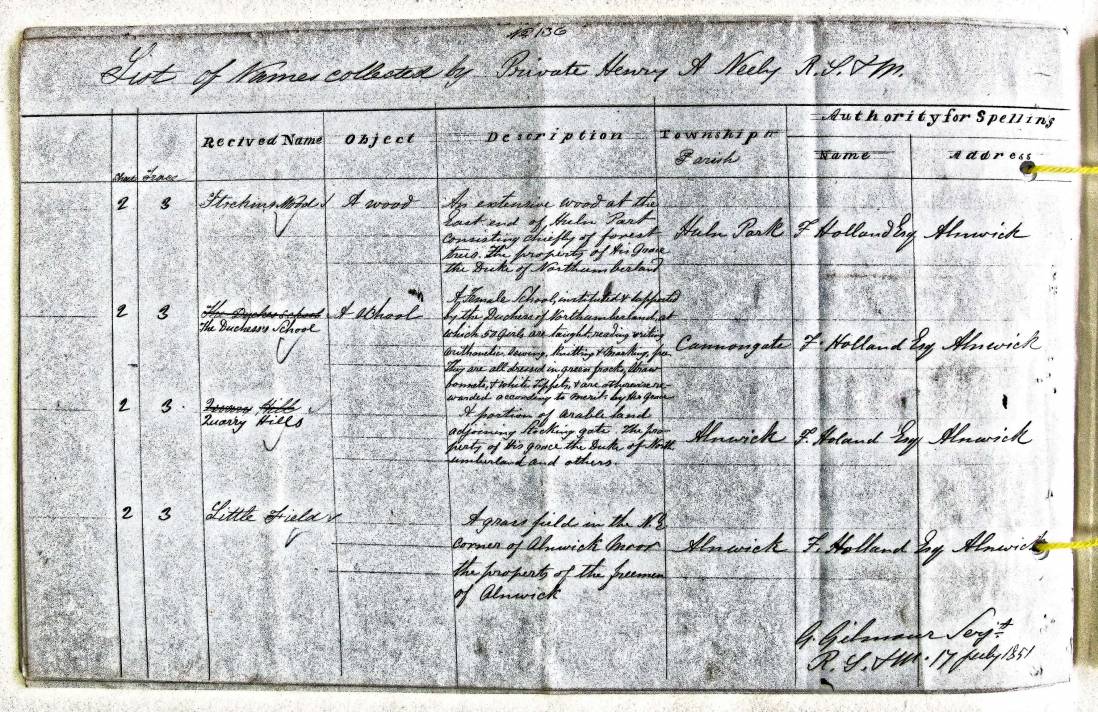 136
List of Names collected by Private Henry A Neely R.S.&M.
Recived Name Object Description Township or Parish Authority for Spelling
Name Address
Trace
2 3 Wood A wood An extensive wood at the
East end of Huln Park
consisting chiefly of forest
trees. The property of His Grace
the Duke of Northumberland
Huln Park F Holland Esq Alnwick
2 3 The Duchess School
The Duchess's School
A School
A Female School, instituted & supported
by the Duchess of Northumberland, at
which 50 Girls are taught reading writing
arithmetic, sewing, knitting & marking, free
They are all dressed in green frocks, straw
bonnets, & white tippets, & are otherwise re-
warded according to merit by His Grace
Cannongate F. Holland Esq Alnwick
2 3 Hills
Quarry Hills
A portion of arable land
adjoining Stocking gate. The pro-
perty of His grace the Duke of North-
umberland and others.
Alnwick F. Holand Esq Alnwick
2 3 Little Field
A grass field in the N.E
corner of Alnwick Moor
the property of the freemen
of Alnwick
Alnwick F. Holland Esq Alnwick
G. Gilmour Serjt
R.S.&M. 17 July 1851